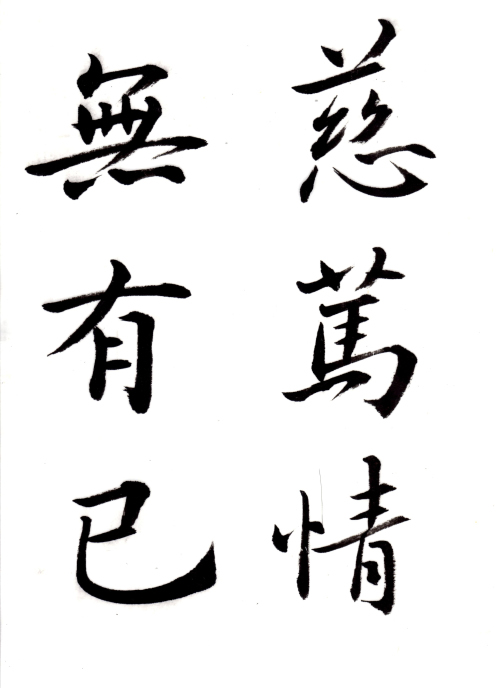 慈篤情
無有已